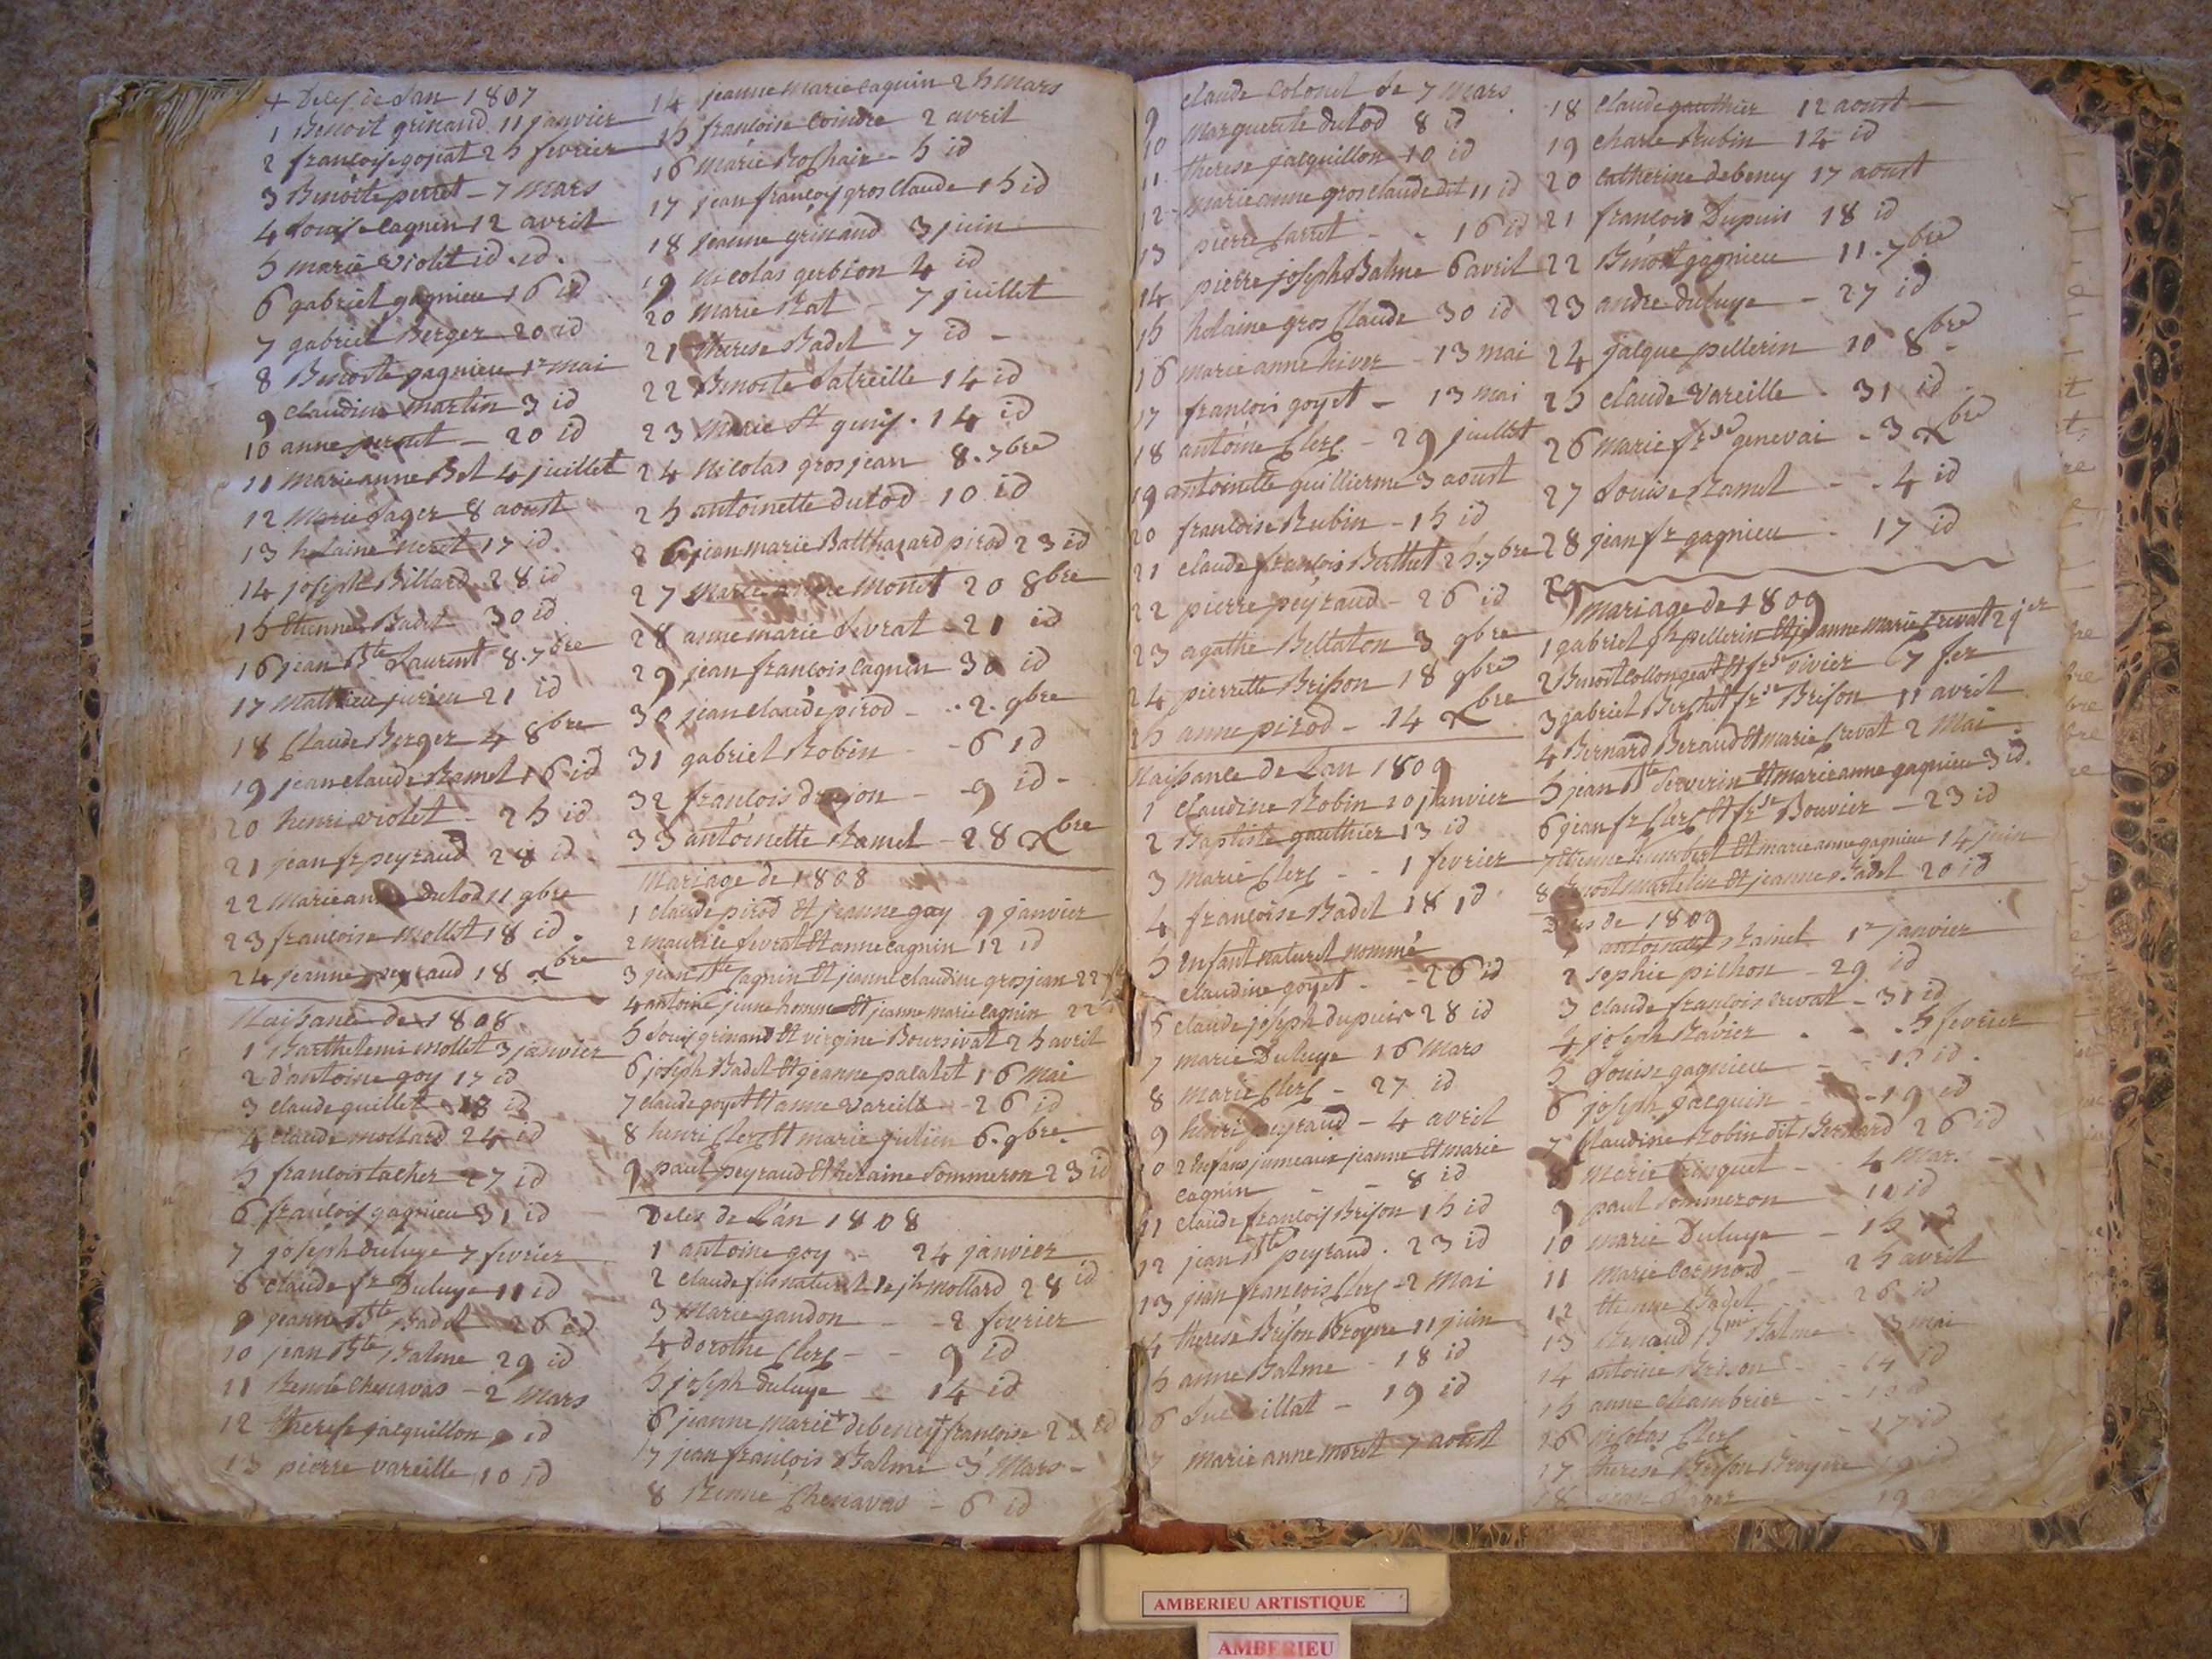 + Deces de Lan 1807
1 Benoit grinand 11 janvier
2 francoise gojat 25 fevrier
3 Benoite perret - 7 Mars
4 Louise Cagnin 12 avril
5 marie violet id. id.
6 gabriel gagnieu 16 id
7 gabriel Berger 20 id
8 Benoite gagnieu 1r mai
9 Claudine martin 3 id
10 anne - 20 id
11 Marie anne Bel 4 juillet
12 Marie Sager 8 aoust
13 helaine neret 17 id
14 joseph Billard 28 id
15 Etienne Badel 30 id
16 jean Bte Laurent 8. 7bre
17 Mathieu jurieu 21 id
18 Claude Berger 4 8bre
19 jean claude Ramel 16 id
20 henri violet - 25 id
21 jean fr peyraud 28 id
22 Marie anne dutod 11 9bre
23 francoise Mollet 18 id.
24 jeanne peyraud 18 Xbre
Naissance de 1808
1 Barthelemi mollet 3 janvier
2 d'antoine goy 17 id
3 claude guillet 18 id
4 claude mollard 24 id
5 francois tacher 27 id
6 francois gagnieu 31 id
7 joseph duluye 7 fevrier
8 claude fr Duluye 11 id
9 jeanne Bte Badel 26 id
10 jean Bte Balme 29 id
11 Renné Chenavas - 2 Mars
12 therese jacquillon 9 id
13 pierre vareille 10 id
14 jeanne marie cagnin 25 Mars
15 francoise Coindre 2 avril
16 Marie Rochair - 5 id
17 jean francois gros claude 15 id
18 jeanne grinand 3 juin
19 Nicolas gerbion 4 id
20 Marie Rat - 7 juillet
21 therese Badel 7 id -
22 Benoite Latreille 14 id
23 Marie St genis. 14 id
24 Nicolas gros jean 8. 7bre
25 antoinette dutod 10 id
26 jean marie Balthazard pirod 23 id
27 Marie anne Monet 20 8bre
28 anne marie Sevrat - 21 id
29 jean francois cagnin 30 id
30 jean claude pirod - .2. 9bre
31 gabriel Robin - 6 id
32 francois - 9 id -
33 antoinette Ramel - 28 Xbre
Mariage de 1808
1 claude pirod et jeanne goy 9 janvier
2 maurice fevrat et anne cagnin 12 id
3 jean Bte cagnin et jeanne claudine grosjean 22
4 antoine jeune homme et jeanne marie cagnin 22
5 Louis grinand et virgine Boursivat 25 avril
6 joseph Badel et jeanne palatet 16 Mai
7 claude goyet et anne Vareille - 26 id
8 henri Clerc et marie julien 6. 9bre.
9 paul peyraud et helaine Sommeron 23 id
Deces de L'an 1808
1 antoine goy - 24 janvier
2 claude fils naturel de jh mollard 28 id
3 Marie gandon - - 2 fevrier
4 dorothe Clerc - - 9 id
5 joseph duluye - 14 id
6 jeanne marie + debeney + francoise 23 id
7 jean francois Balme 3 Mars -
8 Renné Chenavas - 6 id
9 claude Colonel de 7 Mars
10 Marguerite dutod 8 id
11 therese jacquillon 10 id
12 marie anne gros claude dit 11 id
13 pierre Carret - - 16 id
14 pierre joseph Balme 6 avril
15 helaine gros Claude 30 id
16 marie anne hiver - 13 mai
17 francois goyet - 13 mai
18 antoine Clerc - 29 juillet
19 antoinette guillierme 3 aoust
20 francoise Rubin - 15 id
21 claude francois Berthet 25. 7bre
22 pierre peyraud - 26 id
23 agathe Bellaton 3 9bre
24 pierrette Brisson 18 9bre
25 anne pirod - 14 Xbre
Naissance de Lan 1809
1 Claudine Robin 10 janvier
2 Baptiste gauthier 13 id
3 Marie Clerc - - 1 fevrier
4 francoise Badel 18 id
5 Enfant naturel nommé
claudine goyet - - 26 id
6 claude joseph dupuis 28 id
7 marie Duluye 16 Mars
8 marie Clerc - 27 id
9 henri peyraud - 4 avril
10 2 Enfans jumeaux jeanne et marie
cagnin - - 8 id
11 claude francois Brison 15 id
12 jean Bte peyraud. 23 id
13 jean francois Clerc - 2 Mai
14 therese Brison Broyere 11 juin
15 anne Balme - 18 id
16 Luc - 19 id
17 Marie anne moret 7 aoust
18 claude gauthier 12 aoust
19 charle Rubin 14 id
20 catherine debeney 17 aoust
21 francois Dupuis 18 id
22 Benoit gagnieu 11. 7bre
23 andre duluye - 27 id
24 jacque pellerin 10 8bre
25 claude Vareille. 31 id
26 marie frse genevai - 3 Xbre
27 Louise Ramel - - 4 id
28 jean fr gagnieu - 17 id
29
mariage de 1809
1 gabriel jh pellerin et jeanne marie Crevat 29 jer
2 Benoit Collongeat et frse vivier 7 fer
3 gabriel Berchet frse Brison 11 avril
4 Bernard Beraud et marie Crevat 2 Mai
5 jean Bte Serverin et marie anne gagnieu 3 id.
6 jean fr Clerc et frse Bouvier - 23 id
7 Etienne humbert et marie anne gagnieu 14 juin
8 Benoit martelin et jeanne Badel 20 id
Deces de 1809
1 antoinette Ramel 1r janvier
2 sophie pichon - 29 id
3 claude francois crevat - 31 id
4 joseph Ravier . - . 5 fevrier
5 Louise gagnieu - - 12 id.
6 joseph jacquin - - 19 id
7 Claudine Robin dit Bernard 26 id
8 Marie tinguet - - 4 Mars
9 paul Sommeron 10 id
10 marie Duluye - 15 id
11 Marie Carmond - 25 avril
12 Etienne Badel 26 id
13 Renaud Balme 3 mai
14 antoine Brison - - 14 id
15 anne chambrier - - 15 id
16 nicolas Clerc - 17 id
17 therese Brison Broyere 19 id
18 jean Sager 19
AMBERIEU ARTISTIQUE
AMBERIEU